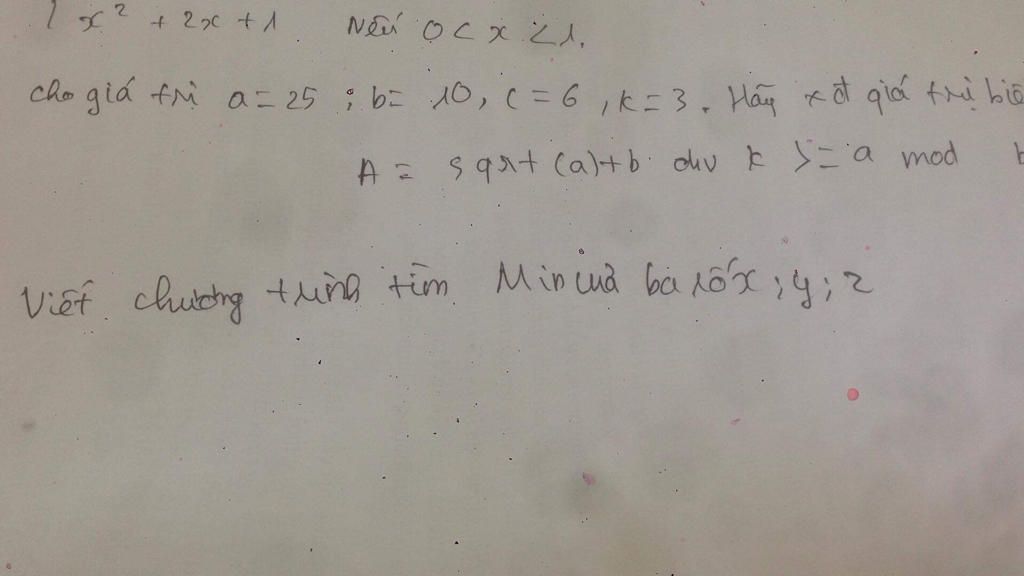 x² + 2x + 1 Nếu 0 < x < 1.
cho giá trị a = 25 ; b = 10, c = 6, k = 3. Hãy xét giá trị
A = sqrt (a) + b div k >= a mod
Viết chương trình tìm Min của ba số x ; y ; z